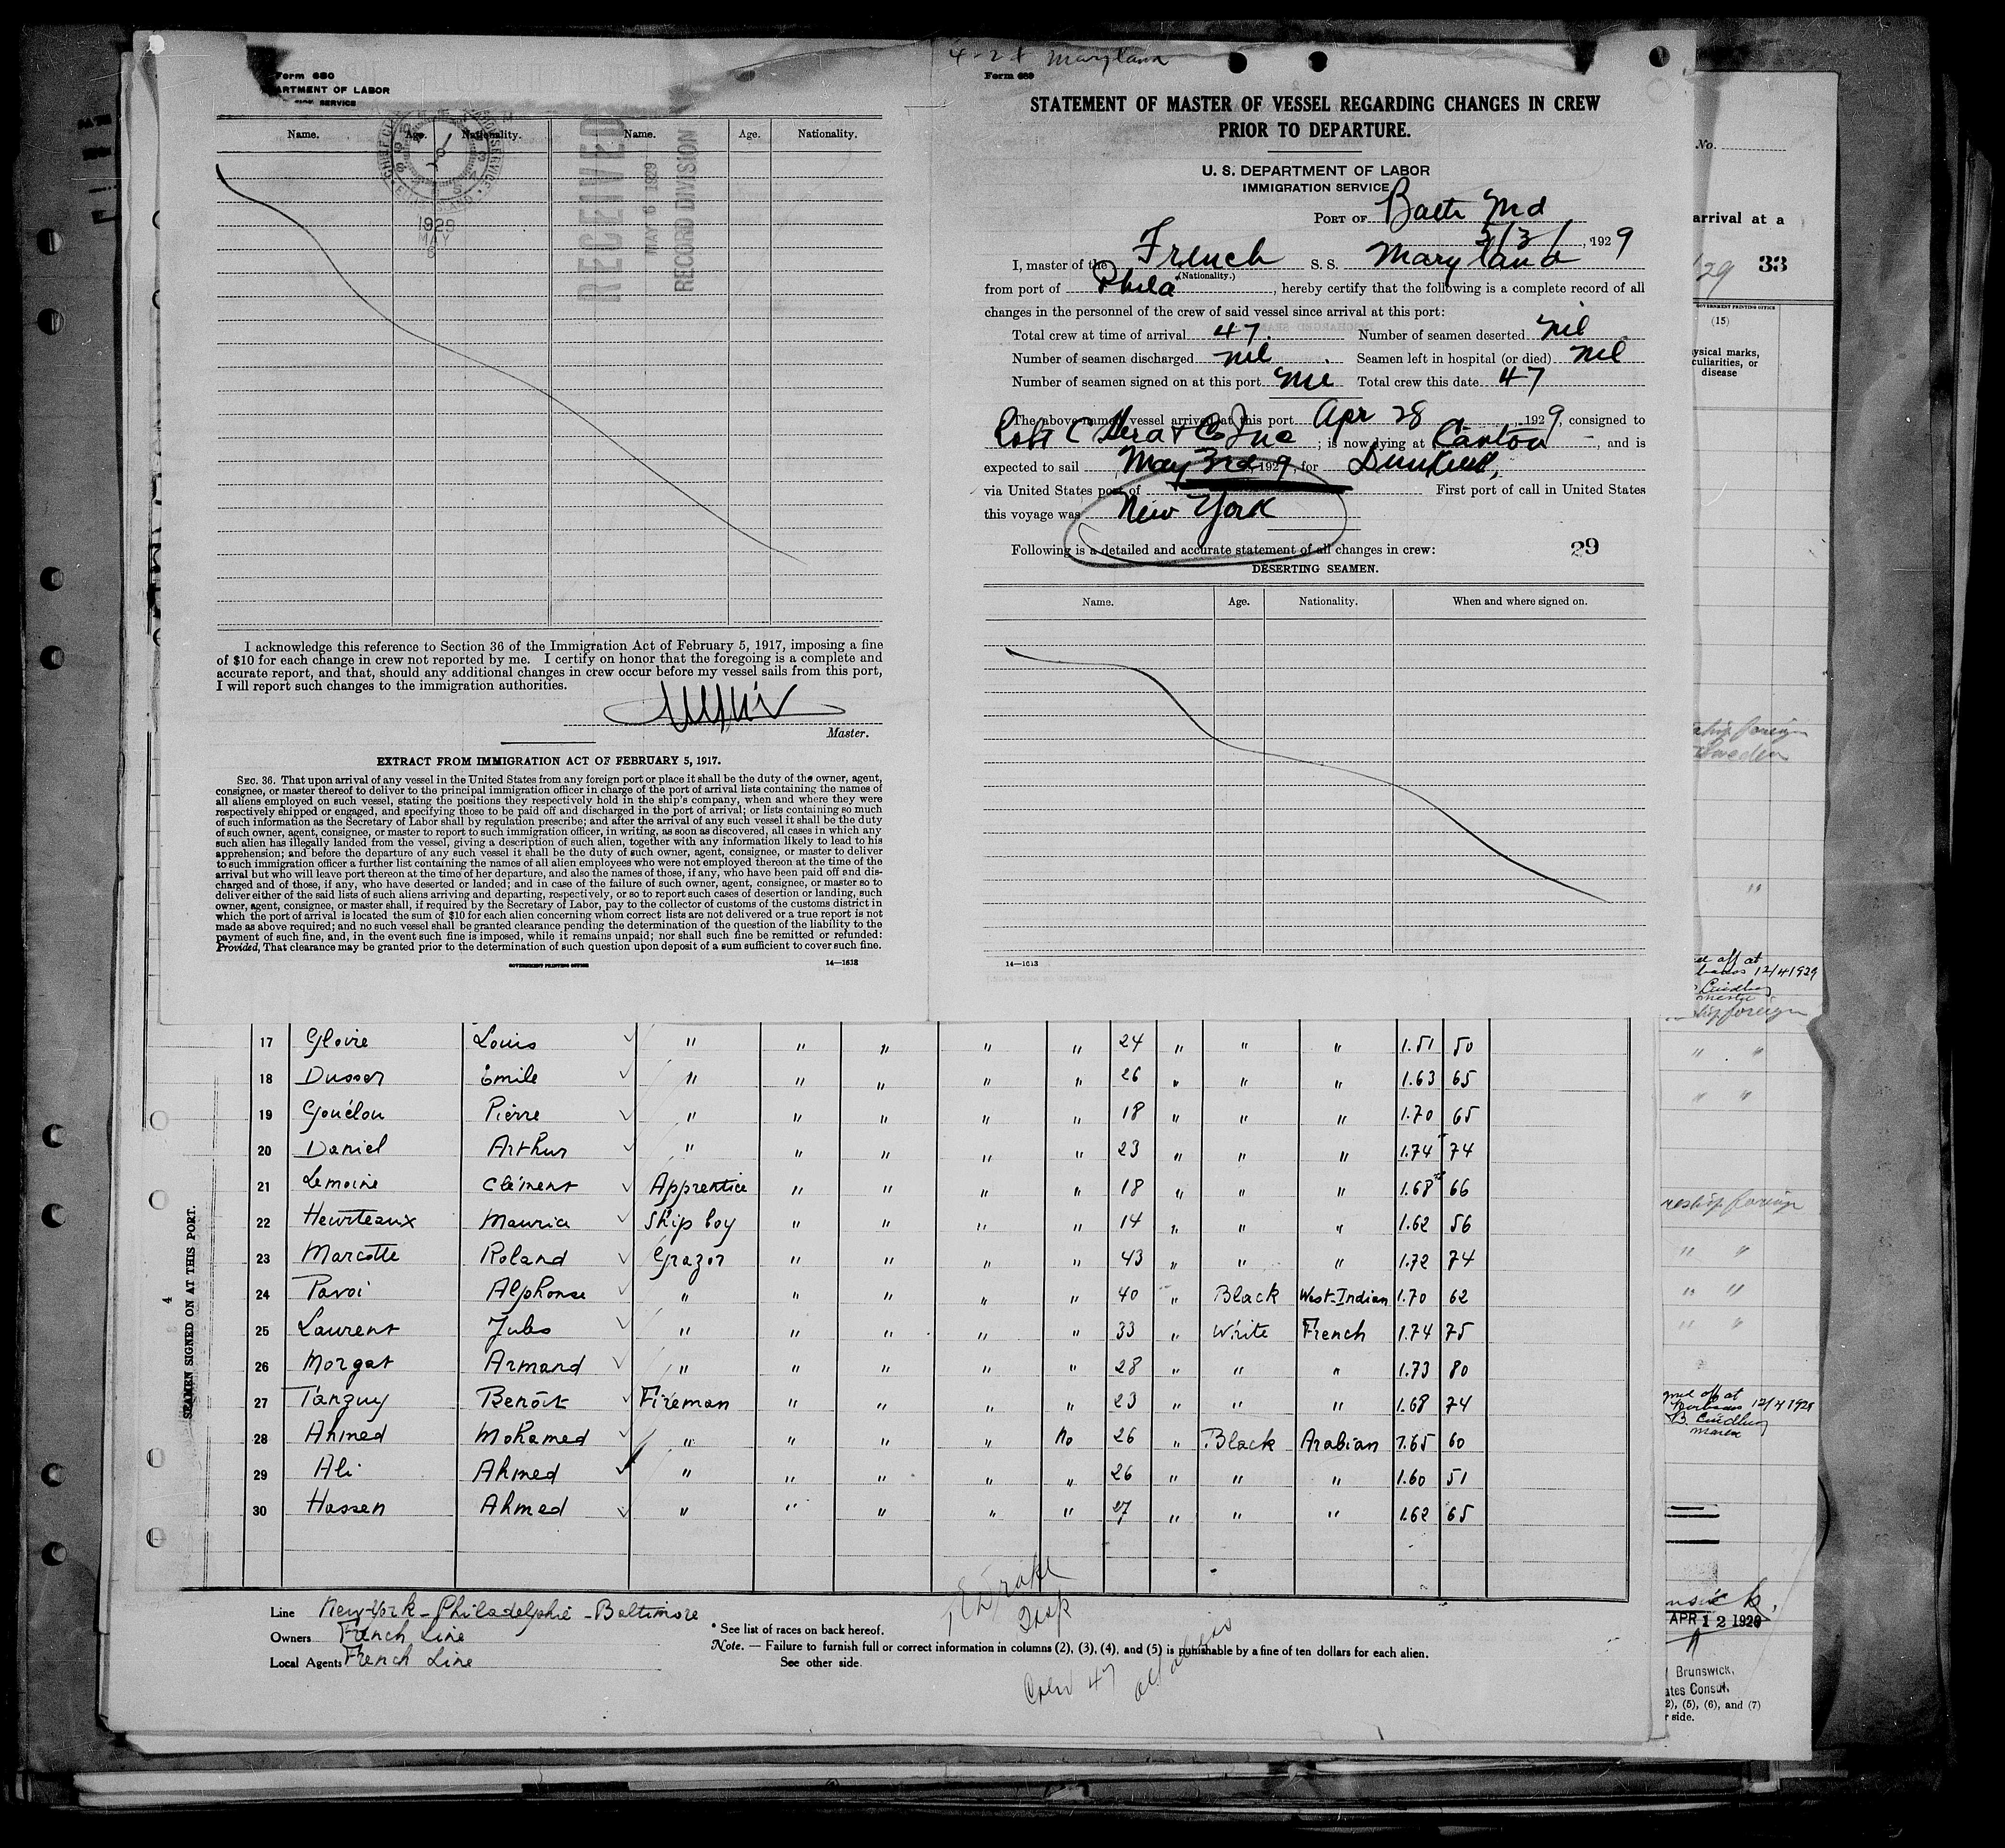 Form 680
ARTMENT OF LABOR
SERVICE
Name. Age. Nationality. Name. Age. Nationality.
1929
MAY
6
RECEIVED
MAY 6 1929
RECORD DIVISION
I acknowledge this reference to Section 36 of the Immigration Act of February 5, 1917, imposing a fine
of $10 for each change in crew not reported by me. I certify on honor that the foregoing is a complete and
accurate report, and that, should any additional changes in crew occur before my vessel sails from this port,
I will report such changes to the immigration authorities.
Master.
EXTRACT FROM IMMIGRATION ACT OF FEBRUARY 5, 1917.
SEC. 36. That upon arrival of any vessel in the United States from any foreign port or place it shall be the duty of the owner, agent,
consignee, or master thereof to deliver to the principal immigration officer in charge of the port of arrival lists containing the names of
all aliens employed on such vessel, stating the positions they respectively hold in the ship's company, when and where they were
respectively shipped or engaged, and specifying those to be paid off and discharged in the port of arrival; or lists containing so much
of such information as the Secretary of Labor shall by regulation prescribe; and after the arrival of any such vessel it shall be the duty
of such owner, agent, consignee, or master to report to such immigration officer, in writing, as soon as discovered, all cases in which any
such alien has illegally landed from the vessel, giving a description of such alien, together with any information likely to lead to his
apprehension; and before the departure of any such vessel it shall be the duty of such owner, agent, consignee, or master to deliver
to such immigration officer a further list containing the names of all alien employees who were not employed thereon at the time of the
arrival but who will leave port thereon at the time of her departure, and also the names of those, if any, who have been paid off and dis-
charged and of those, if any, who have deserted or landed; and in case of the failure of such owner, agent, consignee, or master so to
deliver either of the said lists of such aliens arriving and departing, respectively, or so to report such cases of desertion or landing, such
owner, agent, consignee, or master shall, if required by the Secretary of Labor, pay to the collector of customs of the customs district in
which the port of arrival is located the sum of $10 for each alien concerning whom correct lists are not delivered or a true report is not
made as above required; and no such vessel shall be granted clearance pending the determination of the question of the liability to the
payment of such fine, and, in the event such fine is imposed, while it remains unpaid; nor shall such fine be remitted or refunded:
Provided, That clearance may be granted prior to the determination of such question upon deposit of a sum sufficient to cover such fine.
GOVERNMENT PRINTING OFFICE 14—1613
4-28 Maryland
Form 689
STATEMENT OF MASTER OF VESSEL REGARDING CHANGES IN CREW
PRIOR TO DEPARTURE.
U. S. DEPARTMENT OF LABOR
IMMIGRATION SERVICE
PORT OF Balto Md
, 1929
I, master of the French S. S. Maryland
(Nationality.)
from port of Phila, hereby certify that the following is a complete record of all
changes in the personnel of the crew of said vessel since arrival at this port:
Total crew at time of arrival 47. Number of seamen deserted nil
Number of seamen discharged nil. Seamen left in hospital (or died) nil
Number of seamen signed on at this port nil Total crew this date 47
The above-named vessel arrived at this port Apr 28, 1929, consigned to
& Co Inc; is now lying at Canton, and is
expected to sail May 3rd, 1929, for
via United States port of First port of call in United States
this voyage was New York
Following is a detailed and accurate statement of all changes in crew: 29
DESERTING SEAMEN.
Name. Age. Nationality. When and where signed on.
14—1613
No.
arrival at a
29 33
GOVERNMENT PRINTING OFFICE
(15)
ysical marks,
culiarities, or
disease
foreign
Sweden
"
off at
12/4 1929
foreign
" "
" "
foreign
" "
" "
" "
off at
12/4 1929
APR 12 1929
Brunswick,
ates Consul.
2), (5), (6), and (7)
r side.
SEAMEN SIGNED ON AT THIS PORT.
4
17 Gloire Louis " " " " " 24 " " " 1.51 50
18 Dusser Emile " " " " " 26 " " " 1.63 65
19 Gouélou Pierre " " " " " 18 " " " 1.70 65
20 Daniel Arthur " " " " " 23 " " " 1.74 74
21 Lemoine Clément Apprentice " " " " 18 " " " 1.68 66
22 Heurteaux Maurice Ship boy " " " " 14 " " " 1.62 56
23 Marcotte Roland Grazor " " " " 43 " " " 1.72 74
24 Pavoi Alphonse " " " " " 40 " Black West-Indian 1.70 62
25 Laurent Jules " " " " " 33 " White French 1.74 75
26 Morgat Armand " " " " " 28 " " " 1.73 80
27 Tanguy Benoit Fireman " " " " 23 " " " 1.68 74
28 Ahmed Mohamed " " " " No 26 " Black Arabian 1.65 60
29 Ali Ahmed " " " " " 26 " " " 1.60 51
30 Hassen Ahmed " " " " " 27 " " " 1.62 65
Line New-York - Philadelphie - Baltimore
Owners French Line
Local Agents French Line
* See list of races on back hereof.
Note. — Failure to furnish full or correct information in columns (2), (3), (4), and (5) is punishable by a fine of ten dollars for each alien.
See other side.
47